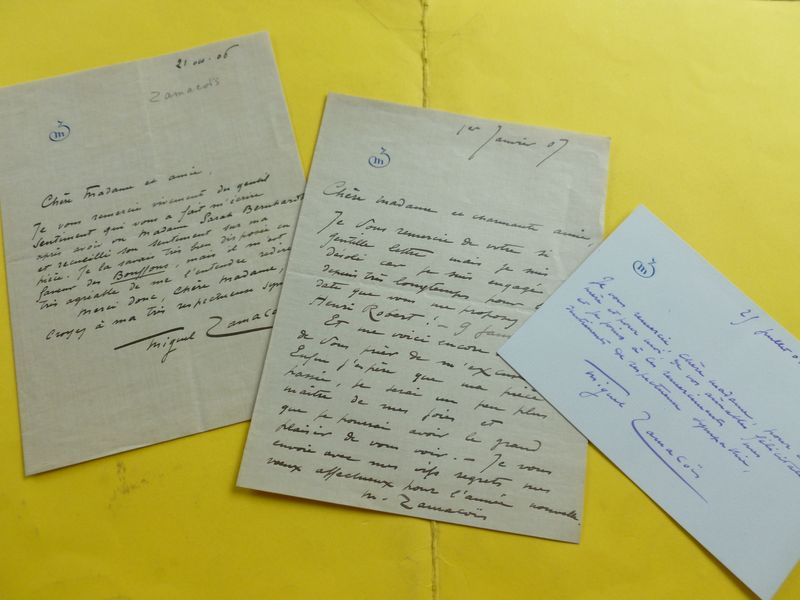 21 oct. 06
Zamacoïs
Chère Madame et amie,
Je vous remercie vivement du gentil
sentiment qui vous a fait m'écrire
après avoir vu Madame Sarah Bernhardt
et recueilli son sentiment sur ma
pièce. Je la savais très bien disposée en
faveur des Bouffons, mais il m'est
très agréable de me l'entendre redire
Merci donc, chère Madame,
croyez à ma très respectueuse sym
Miguel Zamacoïs
1er Janvier 07
Chère madame et charmante amie,
Je vous remercie de votre si
gentille lettre mais je suis
désolé car je suis engagé
depuis très longtemps pour
date que vous me proposez
Henri Robert! - 9
Et me voici encore
de vous prier de m'excuser
Enfin j'espère que ma pièce
passée, je serai un peu plus
maître de mes soirs et
que je pourrai avoir le grand
plaisir de vous voir. - Je vous
envoie avec mes vifs regrets mes
vœux affectueux pour l'année nouvelle.
M. Zamacoïs
25 juillet
Je vous remercie, chère madame, pour
pièce et pour moi, de vos aimables félicitat
et je joins à les remerciements mes
sentiments de respectueuse sympathie,
Miguel Zamacoïs